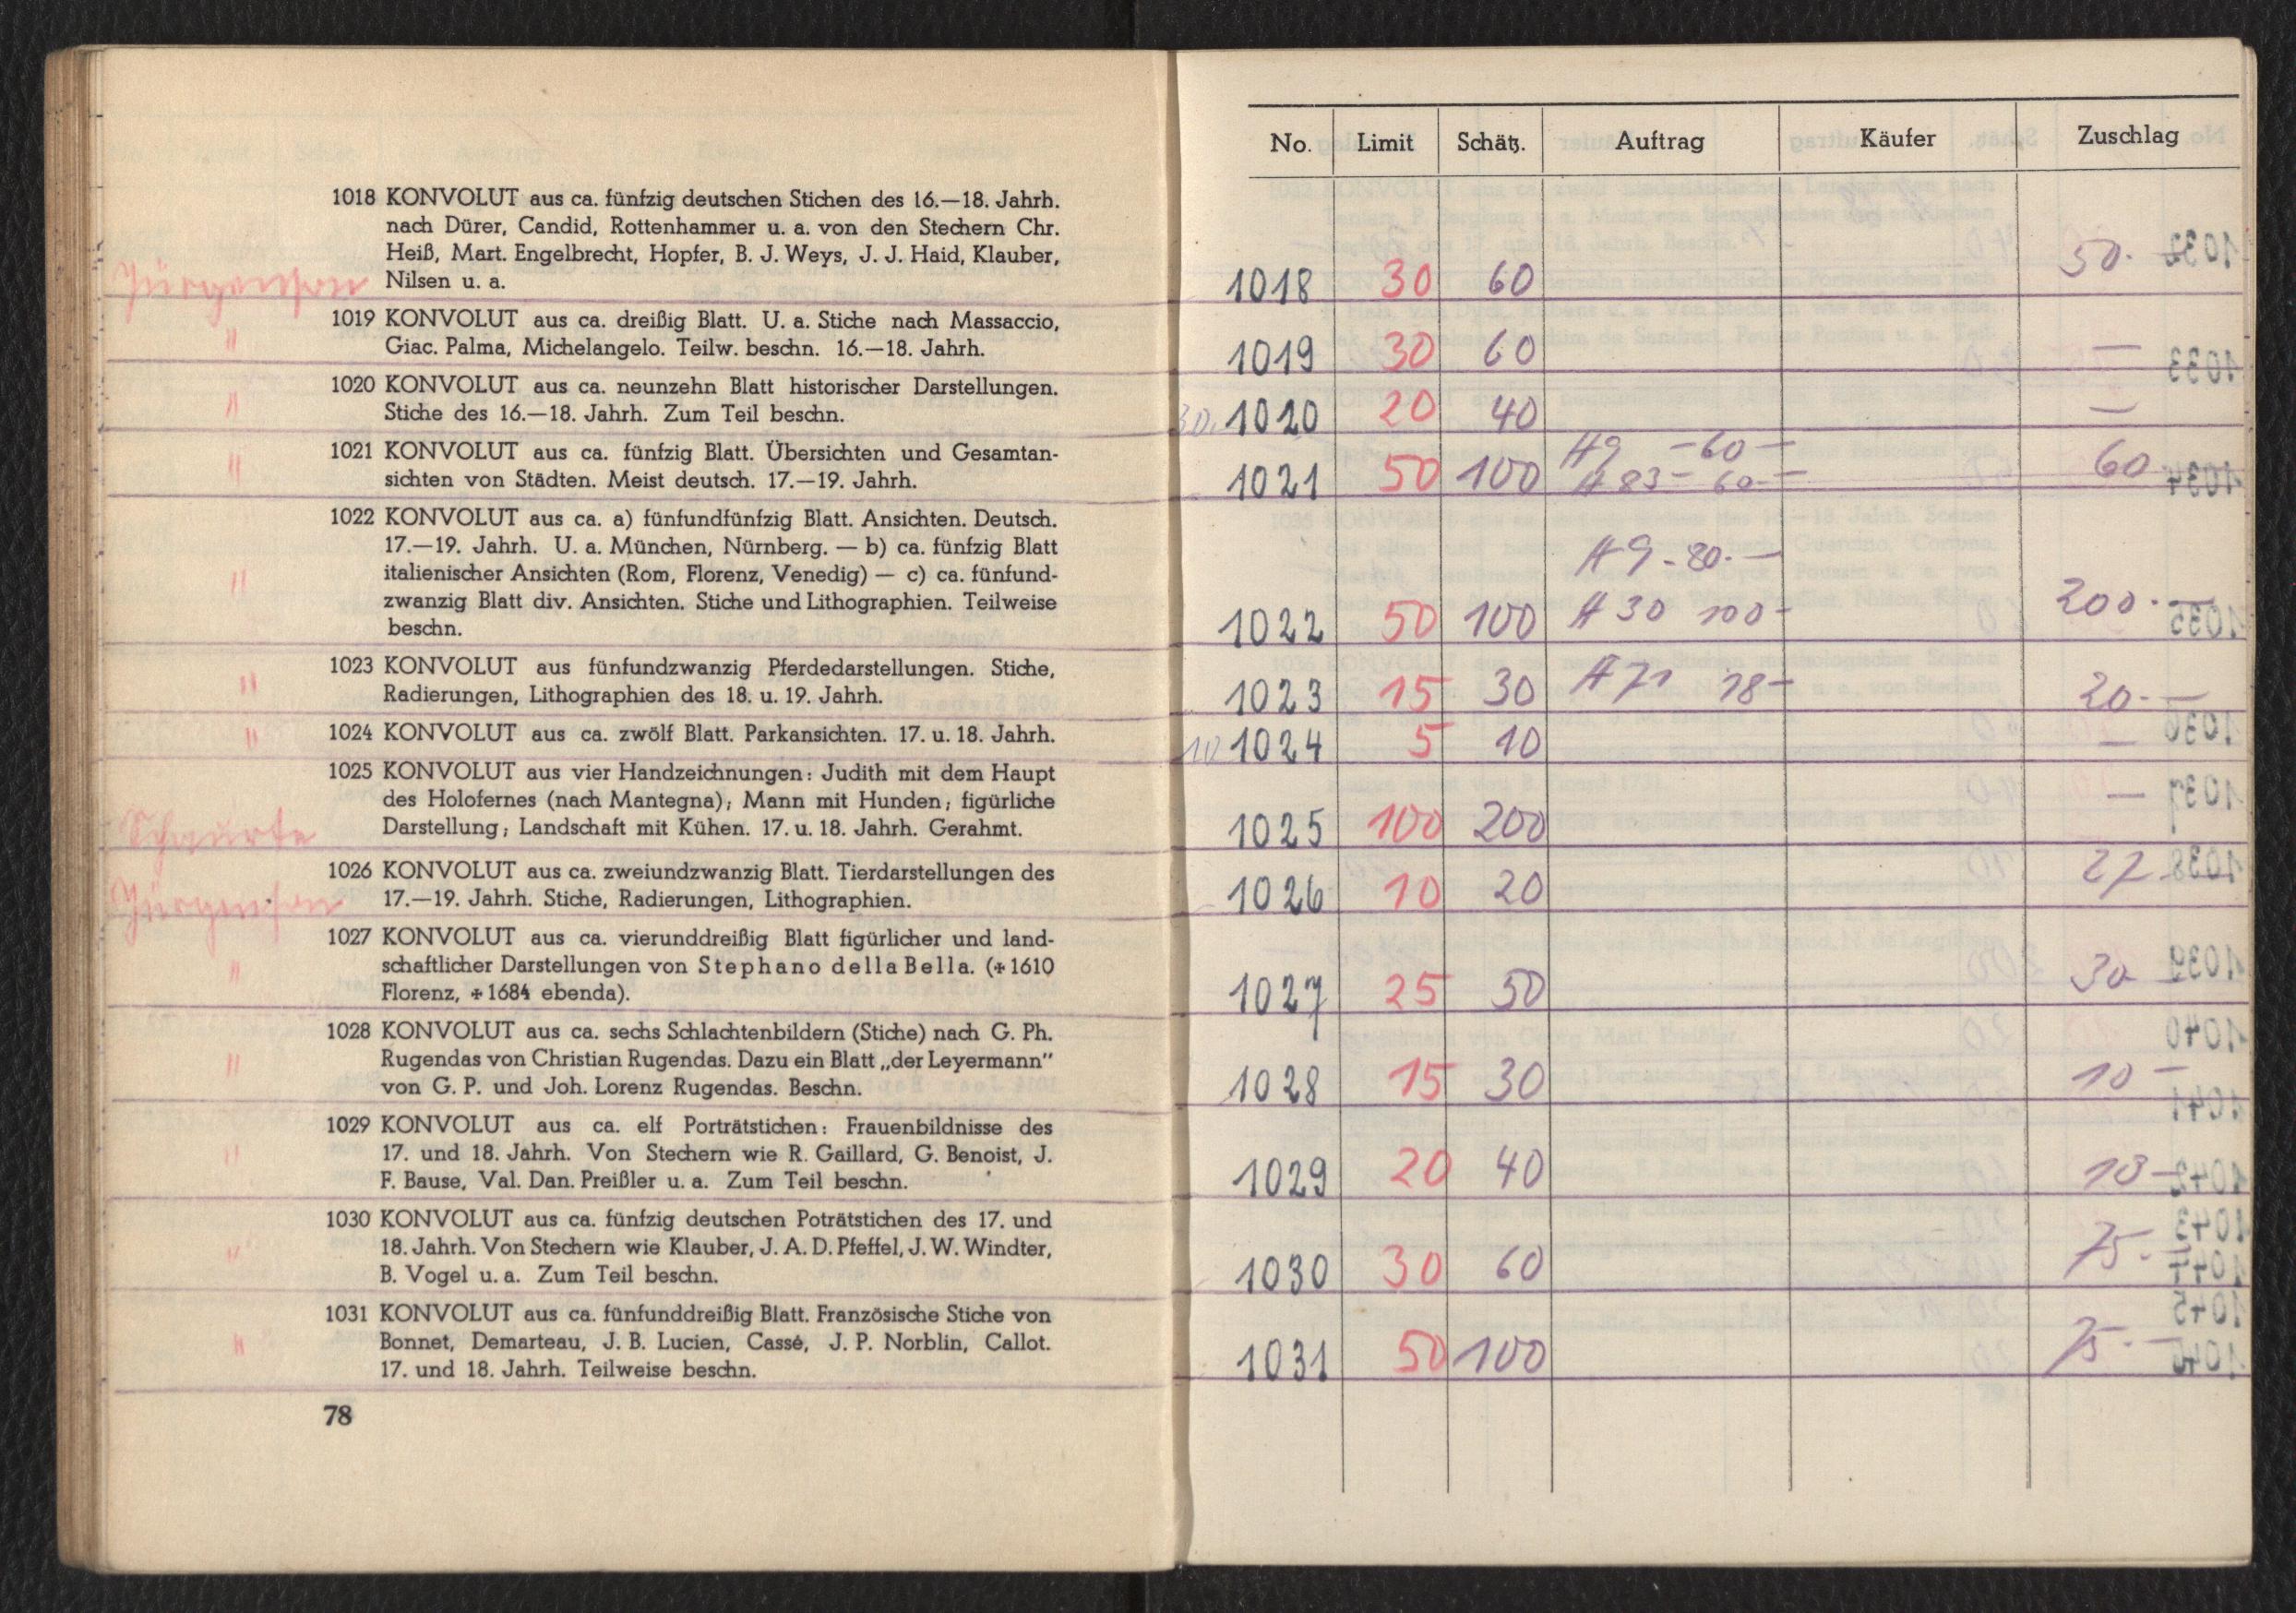 1018 KONVOLUT aus ca. fünfzig deutschen Stichen des 16.—18. Jahrh.
nach Dürer, Candid, Rottenhammer u. a. von den Stechern Chr.
Heiß, Mart. Engelbrecht, Hopfer, B. J. Weys, J. J. Haid, Klauber,
Jürgensen Nilsen u. a.
1019 KONVOLUT aus ca. dreißig Blatt. U. a. Stiche nach Massaccio,
" Giac. Palma, Michelangelo. Teilw. beschn. 16.—18. Jahrh.
1020 KONVOLUT aus ca. neunzehn Blatt historischer Darstellungen.
" Stiche des 16.—18. Jahrh. Zum Teil beschn.
1021 KONVOLUT aus ca. fünfzig Blatt. Übersichten und Gesamtan-
" sichten von Städten. Meist deutsch. 17.—19. Jahrh.
1022 KONVOLUT aus ca. a) fünfundfünfzig Blatt. Ansichten. Deutsch.
17.—19. Jahrh. U. a. München, Nürnberg. — b) ca. fünfzig Blatt
" italienischer Ansichten (Rom, Florenz, Venedig) — c) ca. fünfund-
zwanzig Blatt div. Ansichten. Stiche und Lithographien. Teilweise
beschn.
1023 KONVOLUT aus fünfundzwanzig Pferdedarstellungen. Stiche,
" Radierungen, Lithographien des 18. u. 19. Jahrh.
" 1024 KONVOLUT aus ca. zwölf Blatt. Parkansichten. 17. u. 18. Jahrh.
1025 KONVOLUT aus vier Handzeichnungen: Judith mit dem Haupt
des Holofernes (nach Mantegna); Mann mit Hunden; figürliche
Schaurte Darstellung; Landschaft mit Kühen. 17. u. 18. Jahrh. Gerahmt.
1026 KONVOLUT aus ca. zweiundzwanzig Blatt. Tierdarstellungen des
Jürgensen 17.—19. Jahrh. Stiche, Radierungen, Lithographien.
1027 KONVOLUT aus ca. vierunddreißig Blatt figürlicher und land-
" schaftlicher Darstellungen von Stephano della Bella. (* 1610
Florenz, ✠ 1684 ebenda).
1028 KONVOLUT aus ca. sechs Schlachtenbildern (Stiche) nach G. Ph.
" Rugendas von Christian Rugendas. Dazu ein Blatt „der Leyermann"
von G. P. und Joh. Lorenz Rugendas. Beschn.
1029 KONVOLUT aus ca. elf Porträtstichen: Frauenbildnisse des
" 17. und 18. Jahrh. Von Stechern wie R. Gaillard, G. Benoist, J.
F. Bause, Val. Dan. Preißler u. a. Zum Teil beschn.
1030 KONVOLUT aus ca. fünfzig deutschen Poträtstichen des 17. und
" 18. Jahrh. Von Stechern wie Klauber, J. A. D. Pfeffel, J. W. Windter,
B. Vogel u. a. Zum Teil beschn.
1031 KONVOLUT aus ca. fünfunddreißig Blatt. Französische Stiche von
" Bonnet, Demarteau, J. B. Lucien, Cassé, J. P. Norblin, Callot.
17. und 18. Jahrh. Teilweise beschn.
78
No. Limit Schätz. Auftrag Käufer Zuschlag
1018 30 60 50.
1019 30 60 —
30. 1020 20 40 —
A 9 - 60 -
1021 50 100 A 83 - 60 - 60
A 9 - 80. —
1022 50 100 A 30 100 - 200. —
1023 15 30 A 71 18 - 20. —
10 1024 5 10 —
1025 100 200 —
1026 10 20 27
1027 25 50 30
1028 15 30 10 —
1029 20 40 18 —
1030 30 60 75. —
1031 50 100 75. —